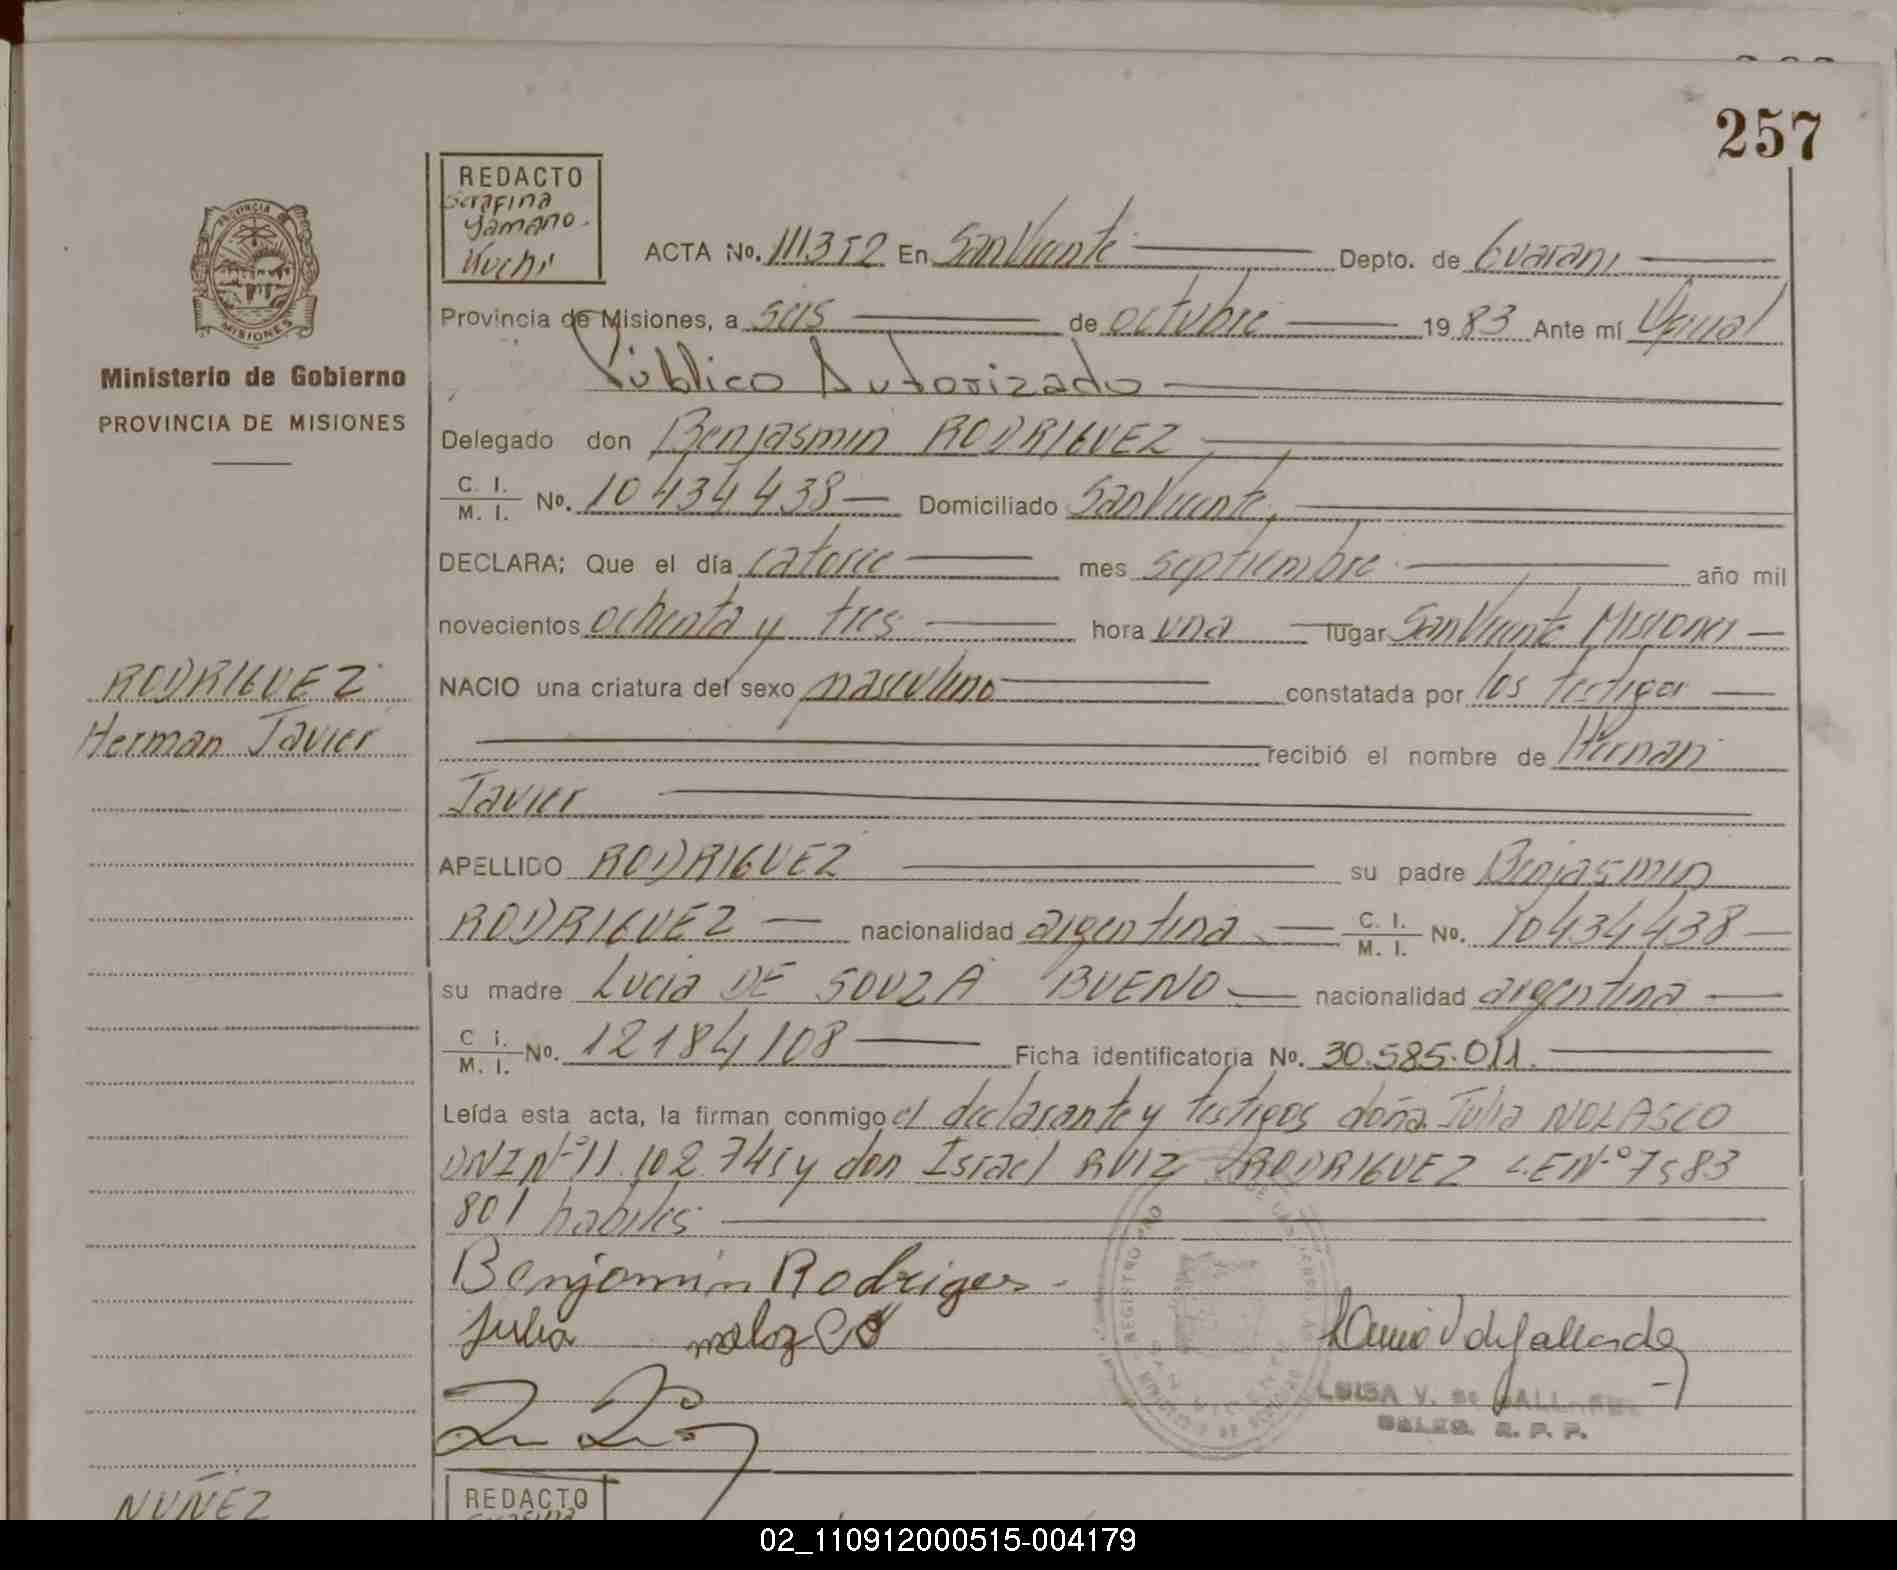 257
REDACTO
Serafina
Yamano
Kuchi
PROVINCIA DE
MISIONES
Ministerio de Gobierno
PROVINCIA DE MISIONES
ACTA No. 111352 En San Vicente Depto. de Guarani
Provincia de Misiones, a seis de octubre 1983 Ante mí
Público Autorizado
Delegado don Benjasmin RODRIGUEZ
C. I. / M. I. No. 10434438 Domiciliado San Vicente,
DECLARA; Que el día catorce mes septiembre año mil
novecientos ochenta y tres hora una lugar San Vicente Misiones
RODRIGUEZ
Herman Javier
NACIO una criatura del sexo masculino constatada por los testigos
recibió el nombre de Hernan
Javier
APELLIDO RODRIGUEZ su padre Benjasmin
RODRIGUEZ nacionalidad argentina C. I. / M. I. No. 10434438
su madre Lucia DE SOUZA BUENO nacionalidad argentina
C. I. / M. I. No. 12184108 Ficha identificatoria No. 30.585.011.
Leída esta acta, la firman conmigo el declarante y testigos doña Julia NOLASCO
DNI Nº 11.102.745 y don Israel RUIZ RODRIGUEZ L.E Nº 7583
801 habiles
Benjamin Rodriges
Julia
LUISA V. de GALLARDO
DELEG. R. P. P.
NUÑEZ
REDACTO
Serafina
02_110912000515-004179